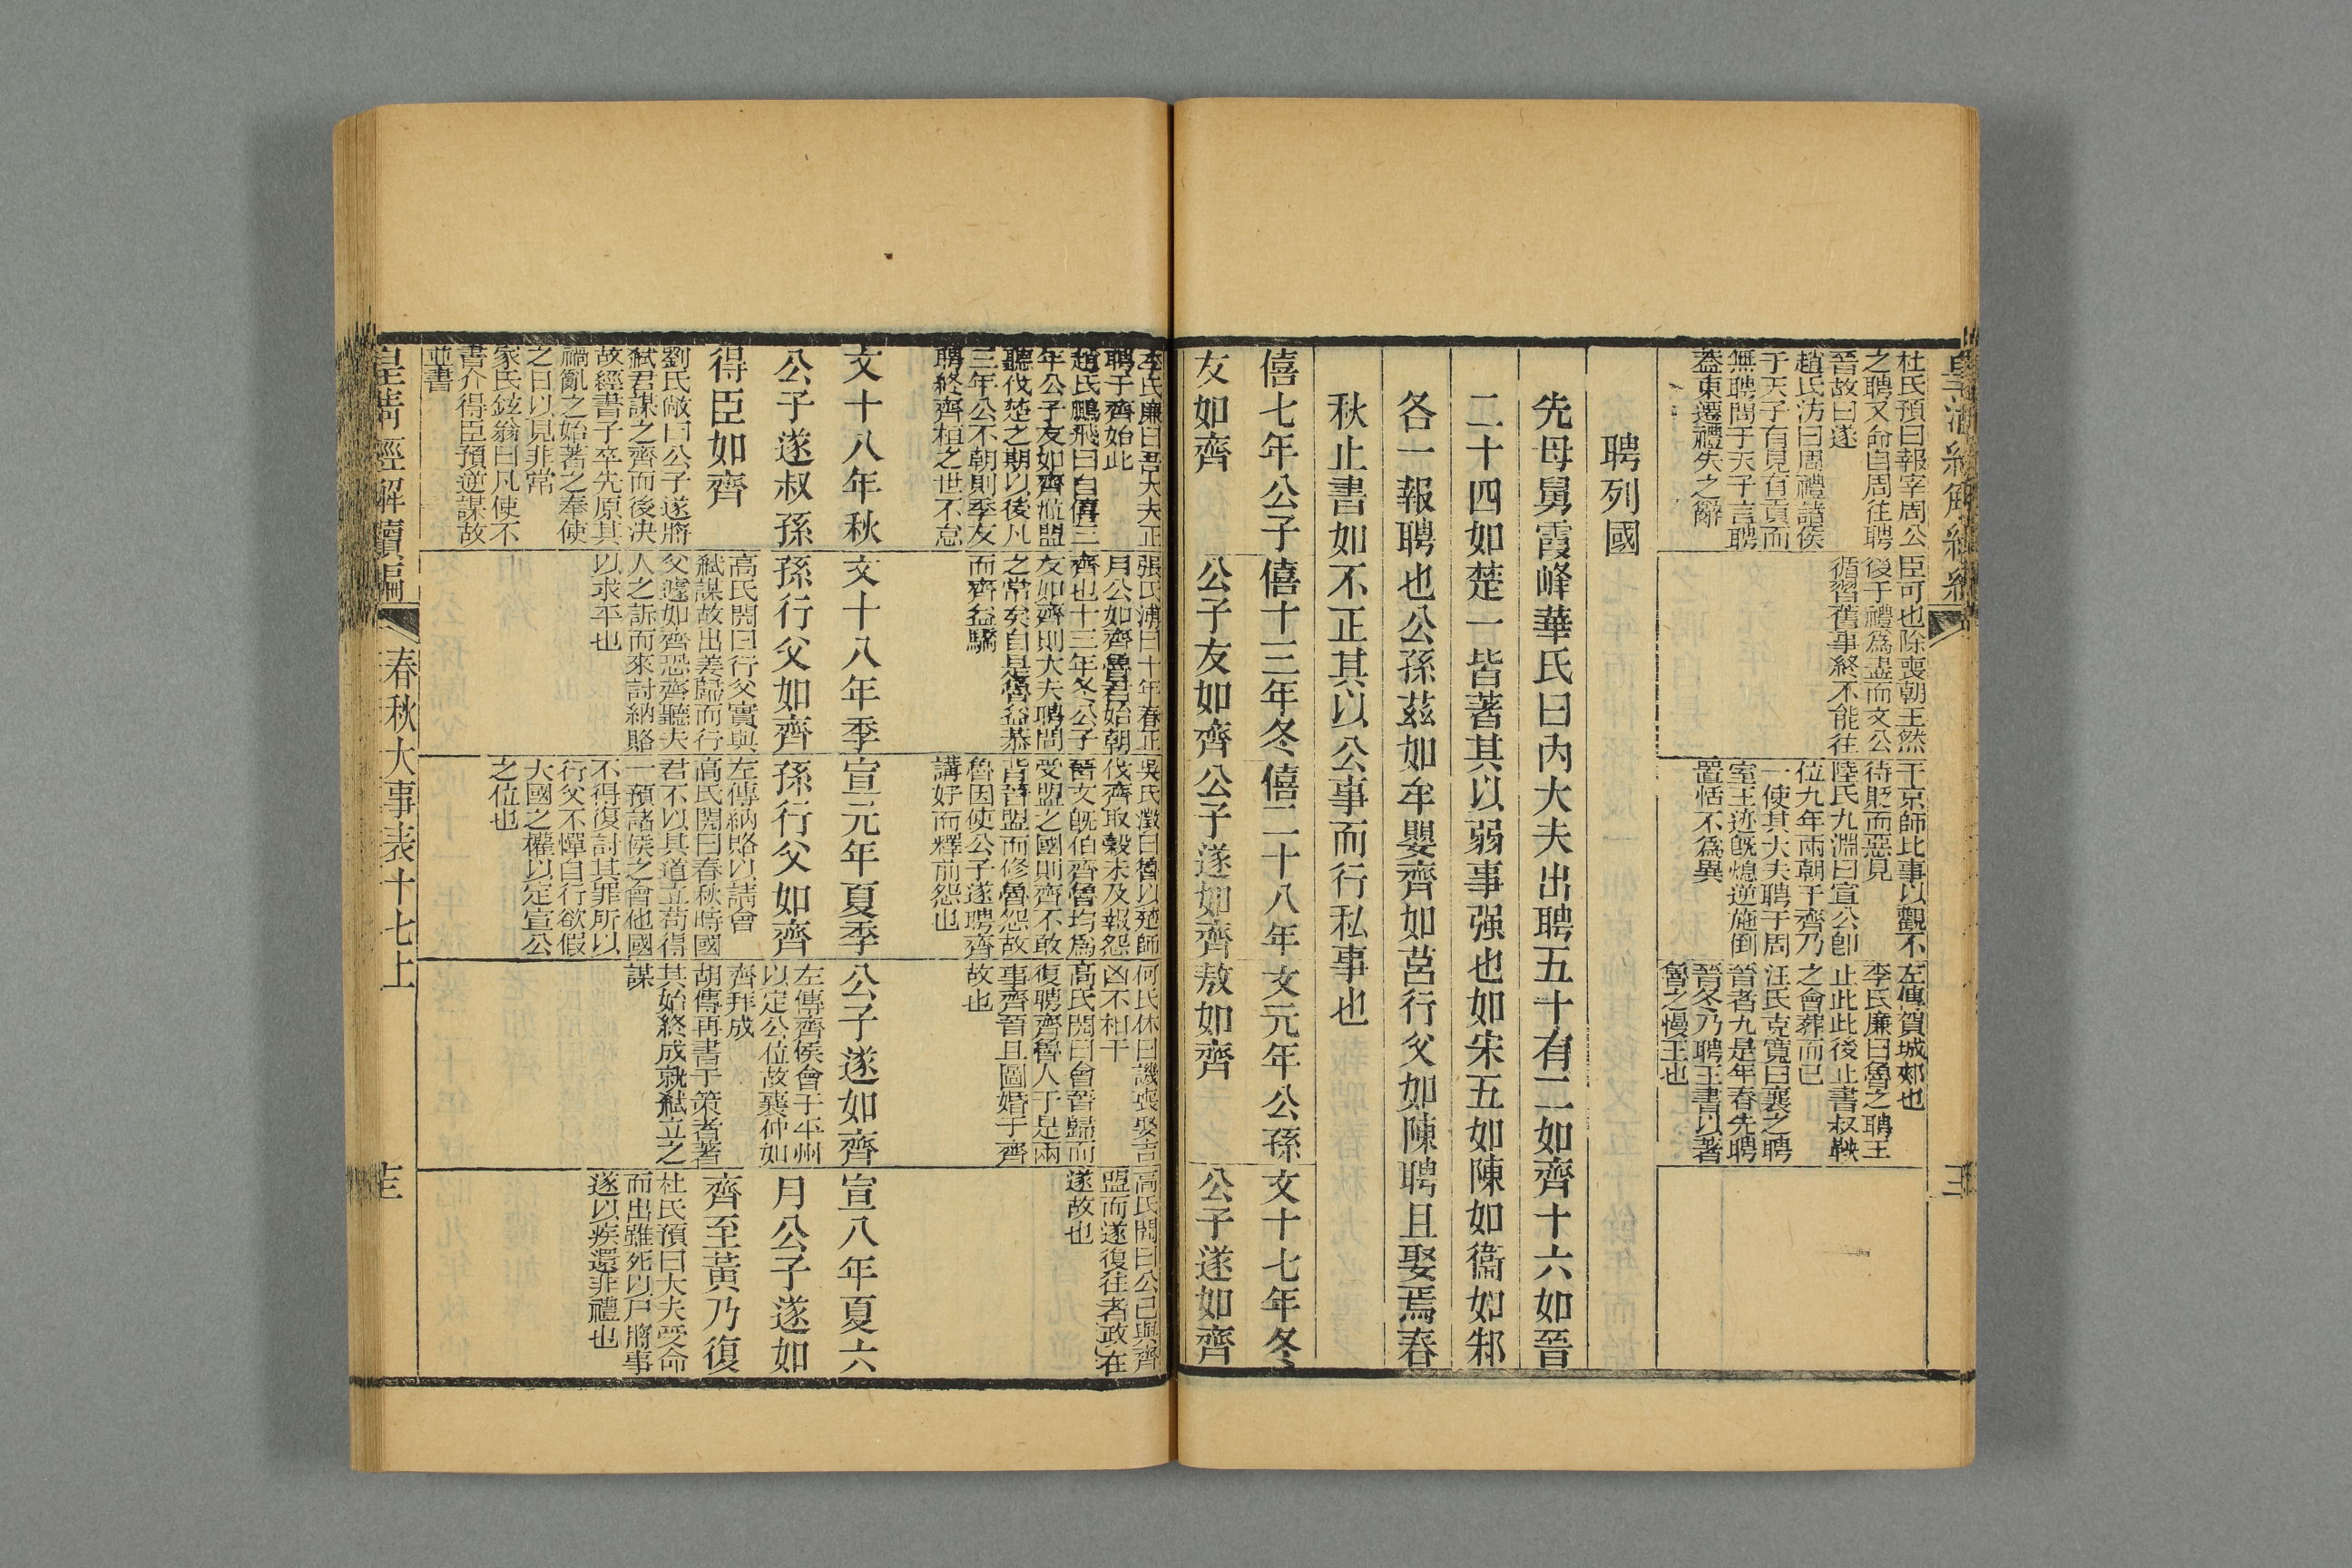 杜氏預曰報宰周公
之聘又命自周往聘
晉故曰遂
趙氏汸曰周禮諸侯
于天子有見有貢而
無聘問于天子言聘
蓋東遷禮失之辭
臣可也除喪朝王然
後于禮爲盡而文公
循習舊事終不能往
于京師比事以觀不
待貶而惡見
陸氏九淵曰宣公卽
位九年兩朝于齊乃
一使其大夫聘于周
室王迹旣熄逆施倒
置恬不爲異
左傳賀城郟也
李氏廉曰魯之聘王
止此此後止書叔鞅
之會葬而已
汪氏克寬曰襄之聘
晉者九是年春先聘
晉冬乃聘王書以著
魯之慢王也
聘列國
先母舅霞峰華氏曰內大夫出聘五十有二如齊十六如晉
二十四如楚一皆著其以弱事强也如宋五如陳如衞如邾
各一報聘也公孫茲如牟嬰齊如莒行父如陳聘且娶焉春
秋止書如不正其以公事而行私事也
僖七年公子
友如齊
僖十三年冬
公子友如齊
僖二十八年
公子遂如齊
文元年公孫
敖如齊
文十七年冬
公子遂如齊
李氏廉曰君大夫正
聘于齊始此
趙氏鵬飛曰自僖三
年公子友如齊涖盟
聽伐楚之期以後凡
三年公不朝則季友
聘終齊桓之世不怠
張氏溥曰十年春正
月公如齊魯君始朝
齊也十三年冬公子
友如齊則大夫聘問
之常矣自是魯益恭
而齊益驕
吳氏澂曰魯以楚師
伐齊取穀未及報怨
晉文旣伯齊魯均爲
受盟之國則齊不敢
背晉盟而修魯怨故
魯因使公子遂聘齊
講好而釋前怨也
何氏休曰譏喪娶吉
凶不相干
高氏閌曰會晉歸而
復聘齊魯人于是兩
事齊晉且圖婚于齊
故也
高氏閌曰公已與齊
盟而遂復往者政在
遂故也
文十八年秋
公子遂叔孫
得臣如齊
劉氏敞曰公子遂將
弒君謀之齊而後決
故經書子卒先原其
禍亂之始著之奉使
之日以見非常
家氏鉉翁曰凡使不
書介得臣預逆謀故
並書
文十八年季
孫行父如齊
高氏閌曰行父實與
弒謀故出姜歸而行
父遽如齊恐齊聽夫
人之訴而來討納賂
以求平也
宣元年夏季
孫行父如齊
左傳納賂以請會
高氏閌曰春秋時國
君不以其道立苟得
一預諸侯之會他國
不得復討其罪所以
行父不憚自行欲假
大國之權以定宣公
之位也
公子遂如齊
左傳齊侯會于平州
以定公位故襄仲如
齊拜成
胡傳再書于策者著
其始終成就弒立之
謀
宣八年夏六
月公子遂如
齊至黃乃復
杜氏預曰大夫受命
而出雖死以尸將事
遂以疾還非禮也
皇清經解續編
春秋大事表十七上